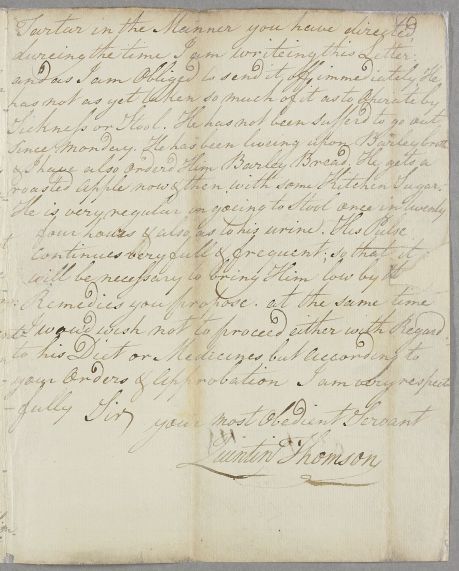 Tartar in the Manner you have directed
dureing the time I am writeing this Letter
and as I am Obliged to send it off immediately He
has not as yet taken so much of it as to Operate by
Sickness or Stool. He has not been Suffer'd to go out
Since Monday. He has been living upon Barley broth
& I have also Order'd Him Barley Bread. He gets a
roasted apple now & then with some Kitchen Sugar.
He is very regular in going to Stool once in twenty
four hours & also as to his urine. His Pulse
continues very full & frequent; so that it
will be necessary to bring Him low by
Remedies you propose. at the same time
I would wish not to proceed either with Regard
to his Diet or Medicines but according to
your Orders & Approbation I am very respect
fully Sir
your most Obedient Servant
Quintin Thomson